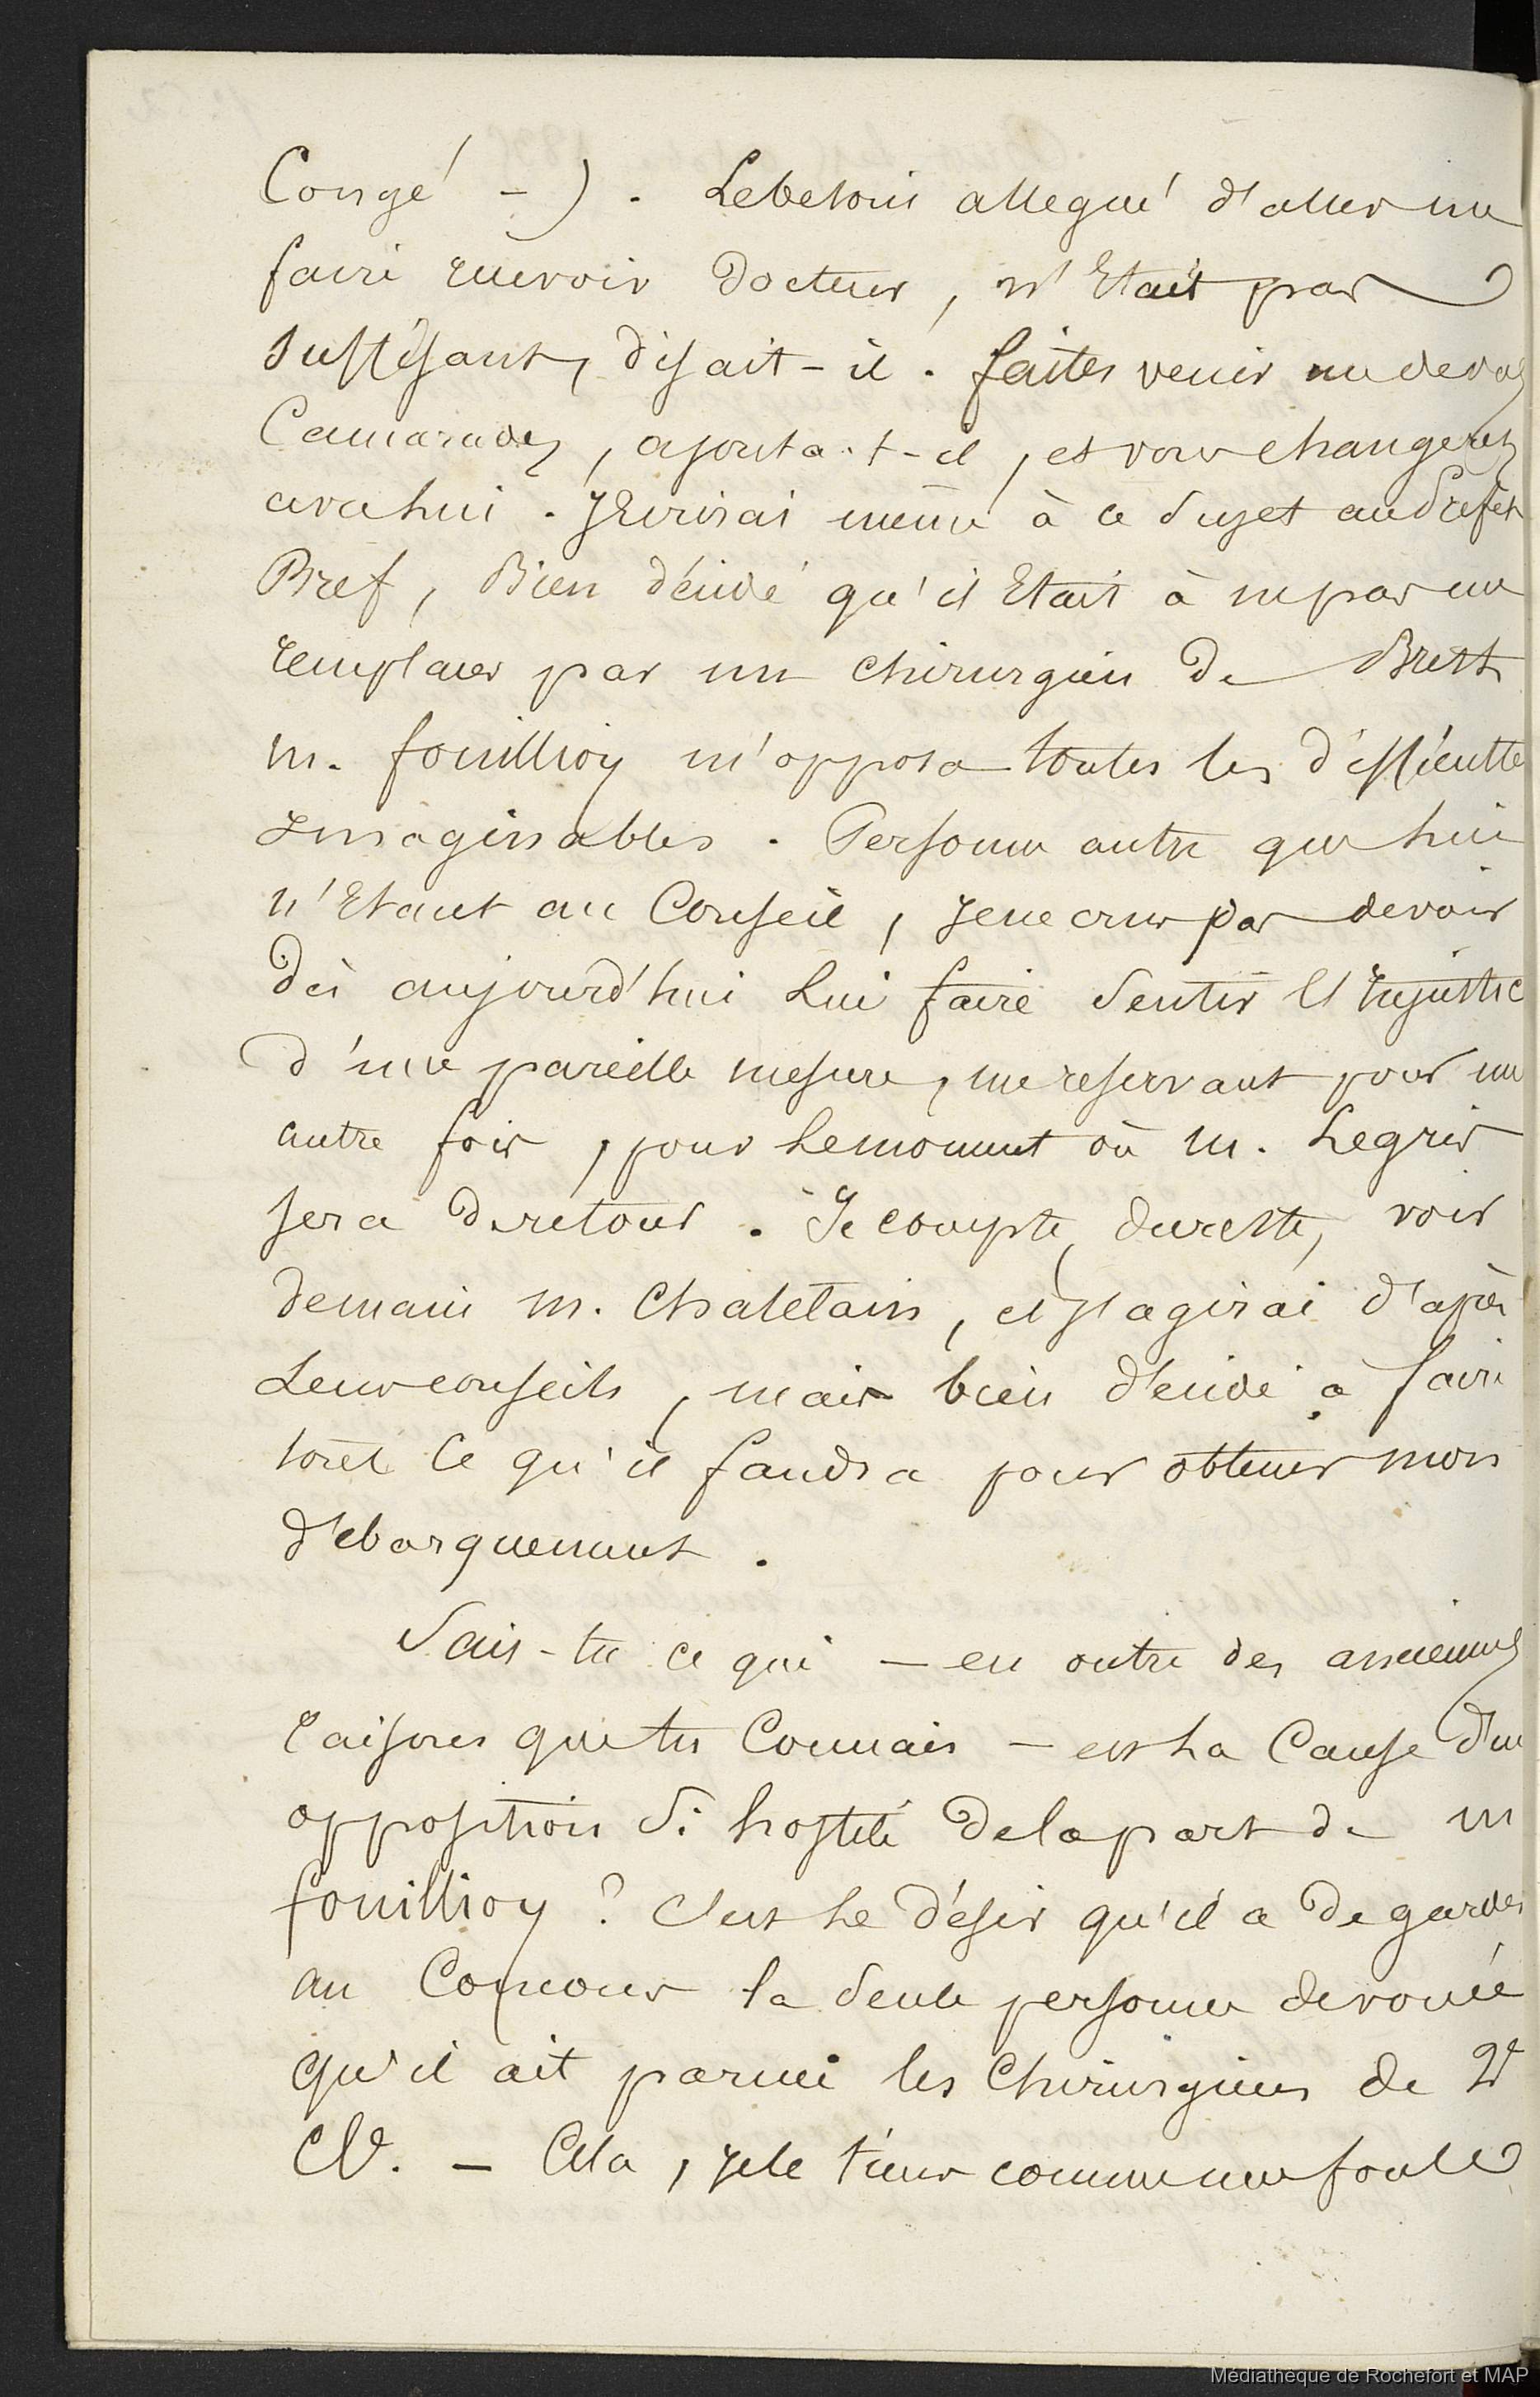 Congé – ). Le besoin allegué d'aller me
faire recevoir Docteur, n'Etait pas
suffisant, disait-il. faites venir un de vos
Camarades, ajouta-t-il, et vous changerez
avec lui. J'Ecrirai même à ce sujet au Prefet
Bref, Bien décidé qu'il Etait à ne pas me
remplacer par un chirurgien De Brest
M. fouillioy m'opposa toutes les difficultés
Imaginables. Personne autre que lui
n'Etant au Conseil, je ne crus pas devoir
Dès aujourd'hui Lui faire sentir l'Injustice
d'une pareille mesure, me reservant pour une
autre fois, pour le moment où M. Legris
sera De retour. Je compte, du reste, voir
demain M. Chatelain, et j'agirai d'après
Leurs conseils, mais bien décidé à faire
tout Ce qu'il faudra pour obtenir mon
débarquement.
Sais-tu ce qui – en outre des anciennes
raisons que tu Connais – est La Cause d'une
opposition si hostile De la part de M
fouillioy ? C'est Le Désir qu'il a De garder
au Concours la seule personne devouée
qu'il ait parmi les Chirurgiens de 2e
Cl. – Cela, je le tiens comme une foule
Médiathèque de Rochefort et MAP